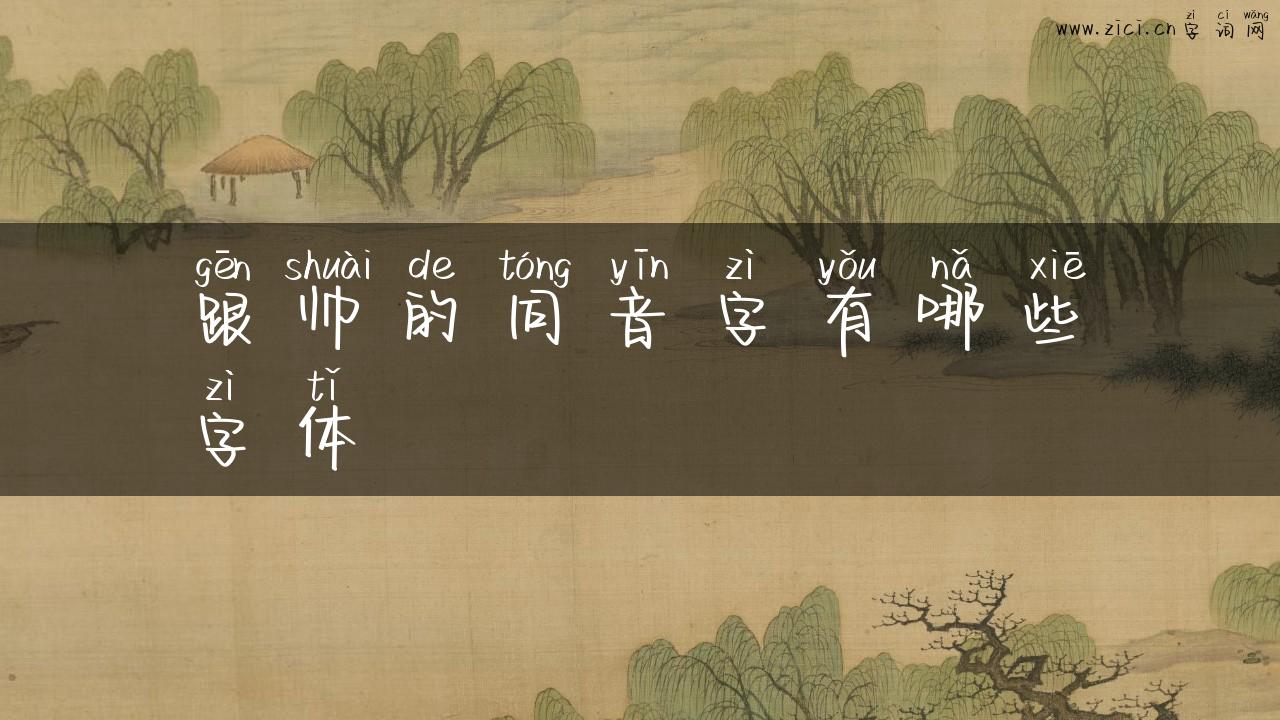 zì cí wǎng
www.zici.cn 字 词 网
gēn shuài de tóng yīn zì yǒu nǎ xiē
跟 帅 的 同 音 字 有 哪 些
zì tǐ
字 体